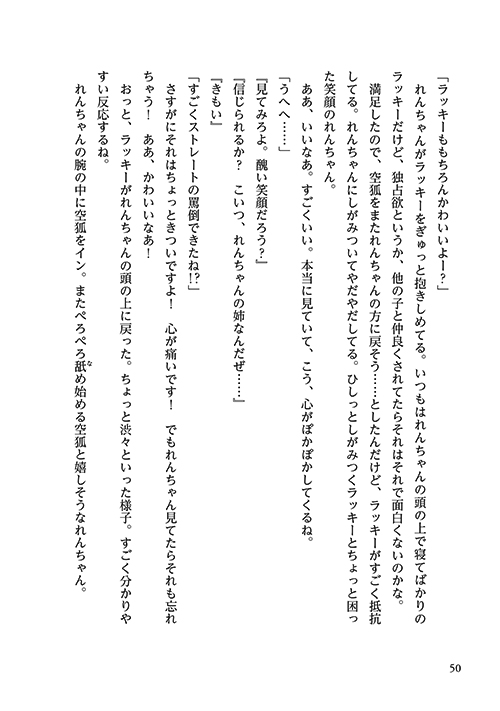 「ラッキーももちろんかわいいよー？」
　れんちゃんがラッキーをぎゅっと抱きしめてる。いつもはれんちゃんの頭の上で寝てばかりの
ラッキーだけど、独占欲というか、他の子と仲良くされてたらそれはそれで面白くないのかな。
　満足したので、空狐をまたれんちゃんの方に戻そう……としたんだけど、ラッキーがすごく抵抗
してる。れんちゃんにしがみついてやだやだしてる。ひしっとしがみつくラッキーとちょっと困っ
た笑顔のれんちゃん。
　ああ、いいなあ。すごくいい。本当に見ていて、こう、心がぽかぽかしてくるね。
「うへへ……」
『見てみろよ。醜い笑顔だろう？』
『信じられるか？　こいつ、れんちゃんの姉なんだぜ……』
『きもい』
「すごくストレートの罵倒できたね!?」
　さすがにそれはちょっときついですよ！　心が痛いです！　でもれんちゃん見てたらそれも忘れ
ちゃう！　ああ、かわいいなあ！
　おっと、ラッキーがれんちゃんの頭の上に戻った。ちょっと渋々といった様子。すごく分かりや
すい反応するね。
　れんちゃんの腕の中に空狐をイン。またぺろぺろ舐め始める空狐と嬉しそうなれんちゃん。
な
50